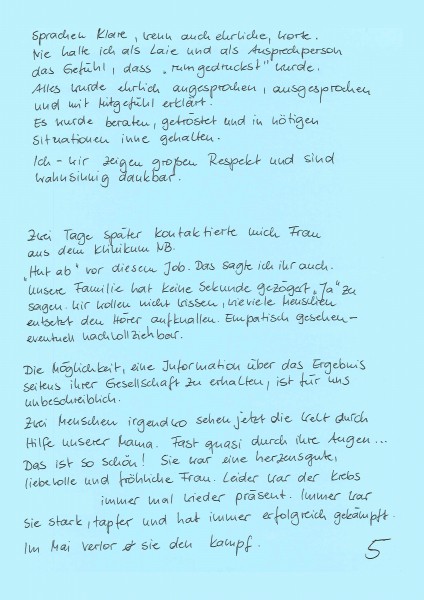 Sprachen Klare, wenn auch ehrliche, Worte.
Nie hatte ich als Laie und als Ansprechperson
das Gefühl, dass "rumgedruckst" wurde.
Alles wurde ehrlich angesprochen, ausgesprochen
und mit Mitgefühl erklärt.
Es wurde beraten, getröstet und in nötigen
Situationen inne gehalten.
Ich - Wir zeigen großen Respekt und sind
wahnsinnig dankbar.
Zwei Tage später kontaktierte mich Frau
aus dem Klinikum NB.
"Hut ab" vor diesem Job. Das sagte ich ihr auch.
Unsere Familie hat keine Sekunde gezögert "Ja" zu
sagen. Wir wollen nicht wissen, wieviele Menschen
entsetzt den Hörer aufknallen. Empatisch gesehen -
eventuell nachvollziehbar.
Die Möglichkeit, eine Information über das Ergebnis
seitens ihrer Gesellschaft zu erhalten, ist für uns
unbeschreiblich.
Zwei Menschen irgendwo sehen jetzt die Welt durch
Hilfe unserer Mama. Fast quasi durch ihre Augen...
Das ist so schön! Sie war eine herzensgute,
liebevolle und fröhliche Frau. Leider war der Krebs
immer mal wieder präsent. Immer war
sie stark, tapfer und hat immer erfolgreich gekämpft.
Im Mai verlor sie den Kampf.
5